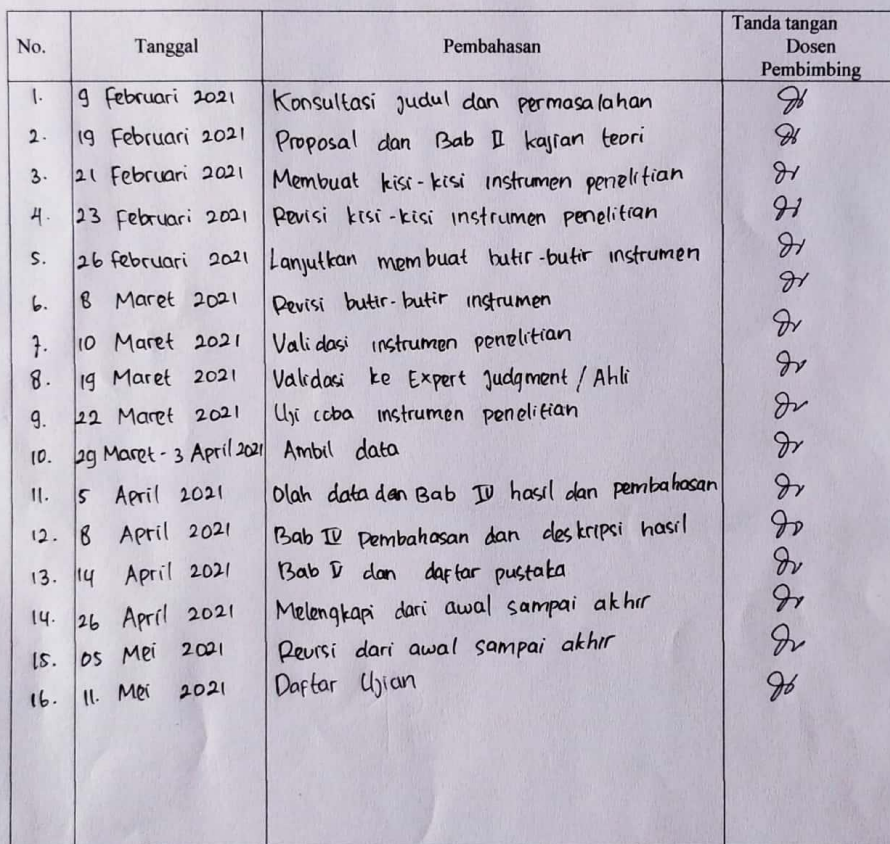 No. Tanggal Pembahasan Tanda tangan
Dosen
Pembimbing
1. 9 Februari 2021 Konsultasi judul dan permasalahan
2. 19 Februari 2021 Proposal dan Bab II kajian teori
3. 21 Februari 2021 Membuat kisi-kisi instrumen penelitian
4. 23 Februari 2021 Revisi kisi-kisi instrumen penelitian
5. 26 februari 2021 Lanjutkan membuat butir-butir instrumen
6. 8 Maret 2021 Revisi butir-butir instrumen
7. 10 Maret 2021 Validasi instrumen penelitian
8. 19 Maret 2021 Validasi ke Expert Judgment / Ahli
9. 22 Maret 2021 Uji coba instrumen penelitian
10. 29 Maret - 3 April 2021 Ambil data
11. 5 April 2021 Olah data dan Bab IV hasil dan pembahasan
12. 8 April 2021 Bab IV pembahasan dan deskripsi hasil
13. 14 April 2021 Bab V dan daftar pustaka
14. 26 April 2021 Melengkapi dari awal sampai akhir
15. 05 Mei 2021 Revisi dari awal sampai akhir
16. 11. Mei 2021 Daftar Ujian